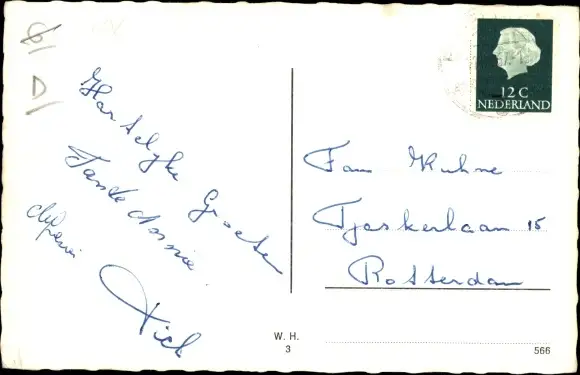 Hartelijke Groeten
Tante Annie
Fam Kuhne
Tjaskerlaan 15
Rotterdam
12 C
NEDERLAND
W. H.
3
566
D